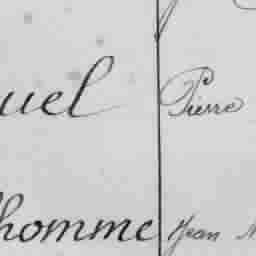 uel Pierre
homme Jean